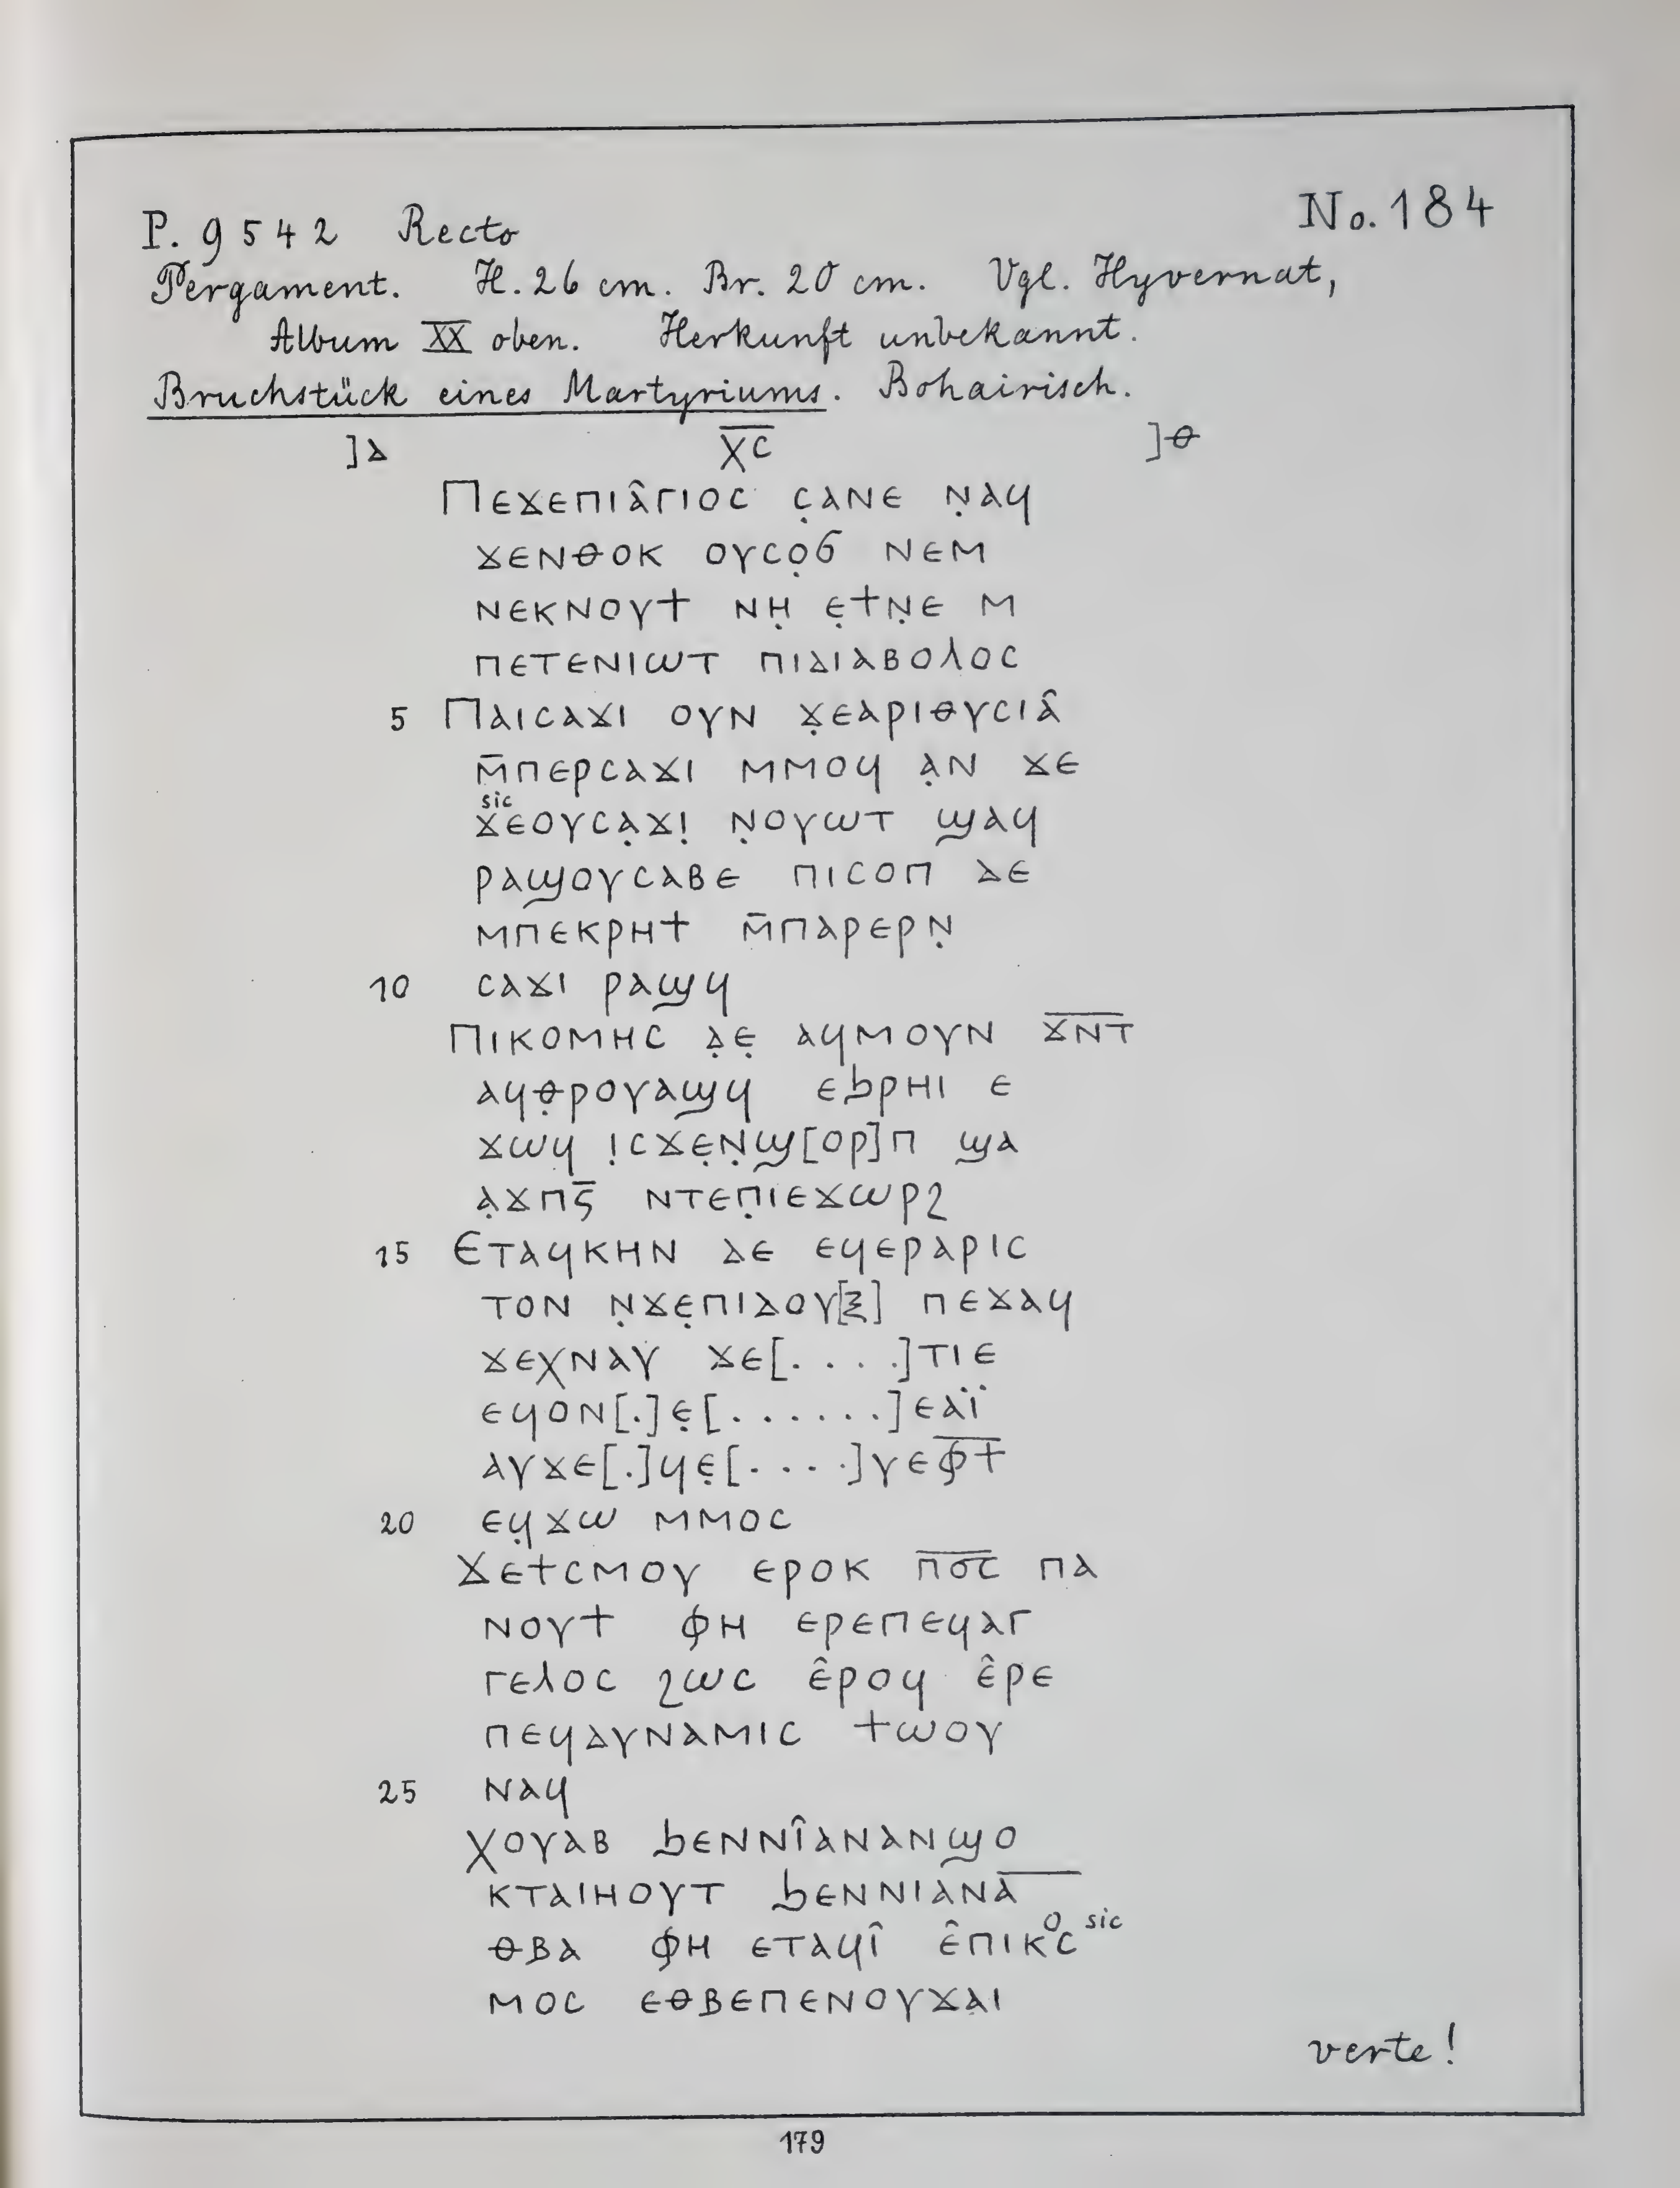 No. 184
P. 9542 Recto
Pergament. H. 26 cm. Br. 20 cm. Vgl. Hyvernat,
Album X̅X̅ oben. Herkunft unbekannt.
Bruchstück eines Martyriums. Bohairisch.
]ⲇ ⲭ̅ⲥ̅ ]ⲑ
Ⲡⲉϫⲉⲡⲓⲁ̂ⲅⲓⲟⲥ ⲥ̣ⲁⲛⲉ ⲛ̣ⲁϥ
ϫⲉⲛⲑⲟⲕ ⲟⲩⲥⲟ̣ϭ ⲛⲉⲙ
ⲛⲉⲕⲛⲟⲩϯ ⲛⲏ̣ ⲉ̣ϯⲛ̣ⲉ ⲙ
ⲡⲉⲧⲉⲛⲓⲱⲧ ⲡⲓⲇⲓⲁⲃⲟⲗⲟⲥ
5 Ⲡⲁⲓⲥⲁϫⲓ ⲟⲩⲛ ϫ̣ⲉⲁⲣⲓⲑⲩⲥⲓⲁ̂
ⲙ̄ⲡⲉⲣⲥⲁϫⲓ ⲙⲙⲟϥ ⲁ̣ⲛ ϫⲉ
sic
ϫⲉⲟⲩⲥⲁ̣ϫⲓ̣ ⲛ̣ⲟⲩⲱⲧ ϣⲁϥ
ⲣⲁϣⲟⲩⲥⲁⲃⲉ ⲡⲓⲥⲟⲡ ⲇⲉ
ⲙⲡⲉⲕⲣⲏϯ ⲙ̄ⲡⲁⲣⲉⲣⲛ̣
10 ⲥⲁϫⲓ ⲣⲁϣϥ
Ⲡⲓⲕⲟⲙⲏⲥ ⲇ̣ⲉ̣ ⲁϥⲙⲟⲩⲛ ϫ̅ⲛ̅ⲧ̅
ⲁϥⲑ̣ⲣⲟⲩⲁϣϥ ⲉϧⲣⲏⲓ ⲉ
ϫⲱϥ ⲓ̣ⲥϫⲉ̣ⲛ̣ϣ[ⲟⲣ]ⲡ ϣⲁ
ⲁ̣ϫⲡⲋ̄ ⲛⲧⲉⲡ̣ⲓⲉϫⲱⲣϩ
15 Ⲉⲧⲁϥⲕⲏⲛ ⲇⲉ ⲉϥⲉⲣⲁⲣⲓⲥ
ⲧⲟⲛ ⲛ̣ϫⲉ̣ⲡⲓⲇⲟⲩ[ⲝ] ⲡⲉϫⲁϥ
ϫⲉⲭⲛⲁⲩ ϫⲉ[. . . .]ⲧⲓⲉ
ⲉϥⲟⲛ[.]ⲉ̣[. . . . . . .]ⲉⲁⲓ̈
ⲁⲩϫⲉ[.]ϥⲉ̣[. . . .]ⲩⲉⲫ̅ϯ̅
20 ⲉϥ̣ϫⲱ ⲙⲙⲟⲥ
Ϫⲉϯⲥⲙⲟⲩ ⲉⲣⲟⲕ ⲡ̅ⲟ̅ⲥ̅ ⲡⲁ
ⲛⲟⲩϯ ⲫⲏ ⲉⲣⲉⲡⲉϥⲁⲅ
ⲅⲉⲗⲟⲥ ϩⲱⲥ ⲉ̂ⲣⲟϥ ⲉ̂ⲣⲉ
ⲡⲉϥⲇⲩⲛⲁⲙⲓⲥ ϯⲱⲟⲩ
25 ⲛⲁϥ
Ⲭⲟⲩⲁⲃ ϧⲉⲛⲛⲓ̂ⲁⲛⲁⲛϣⲟ
ⲕⲧⲁⲓⲏⲟⲩⲧ ϧⲉⲛⲛⲓⲁⲛⲁ̅
ⲑⲃⲁ ⲫⲏ ⲉⲧⲁϥⲓ̂ ⲉ̂ⲡⲓⲕⲟⲥ sic
ⲙⲟⲥ ⲉⲑⲃⲉⲡⲉⲛⲟⲩϫⲁⲓ
verte!
179